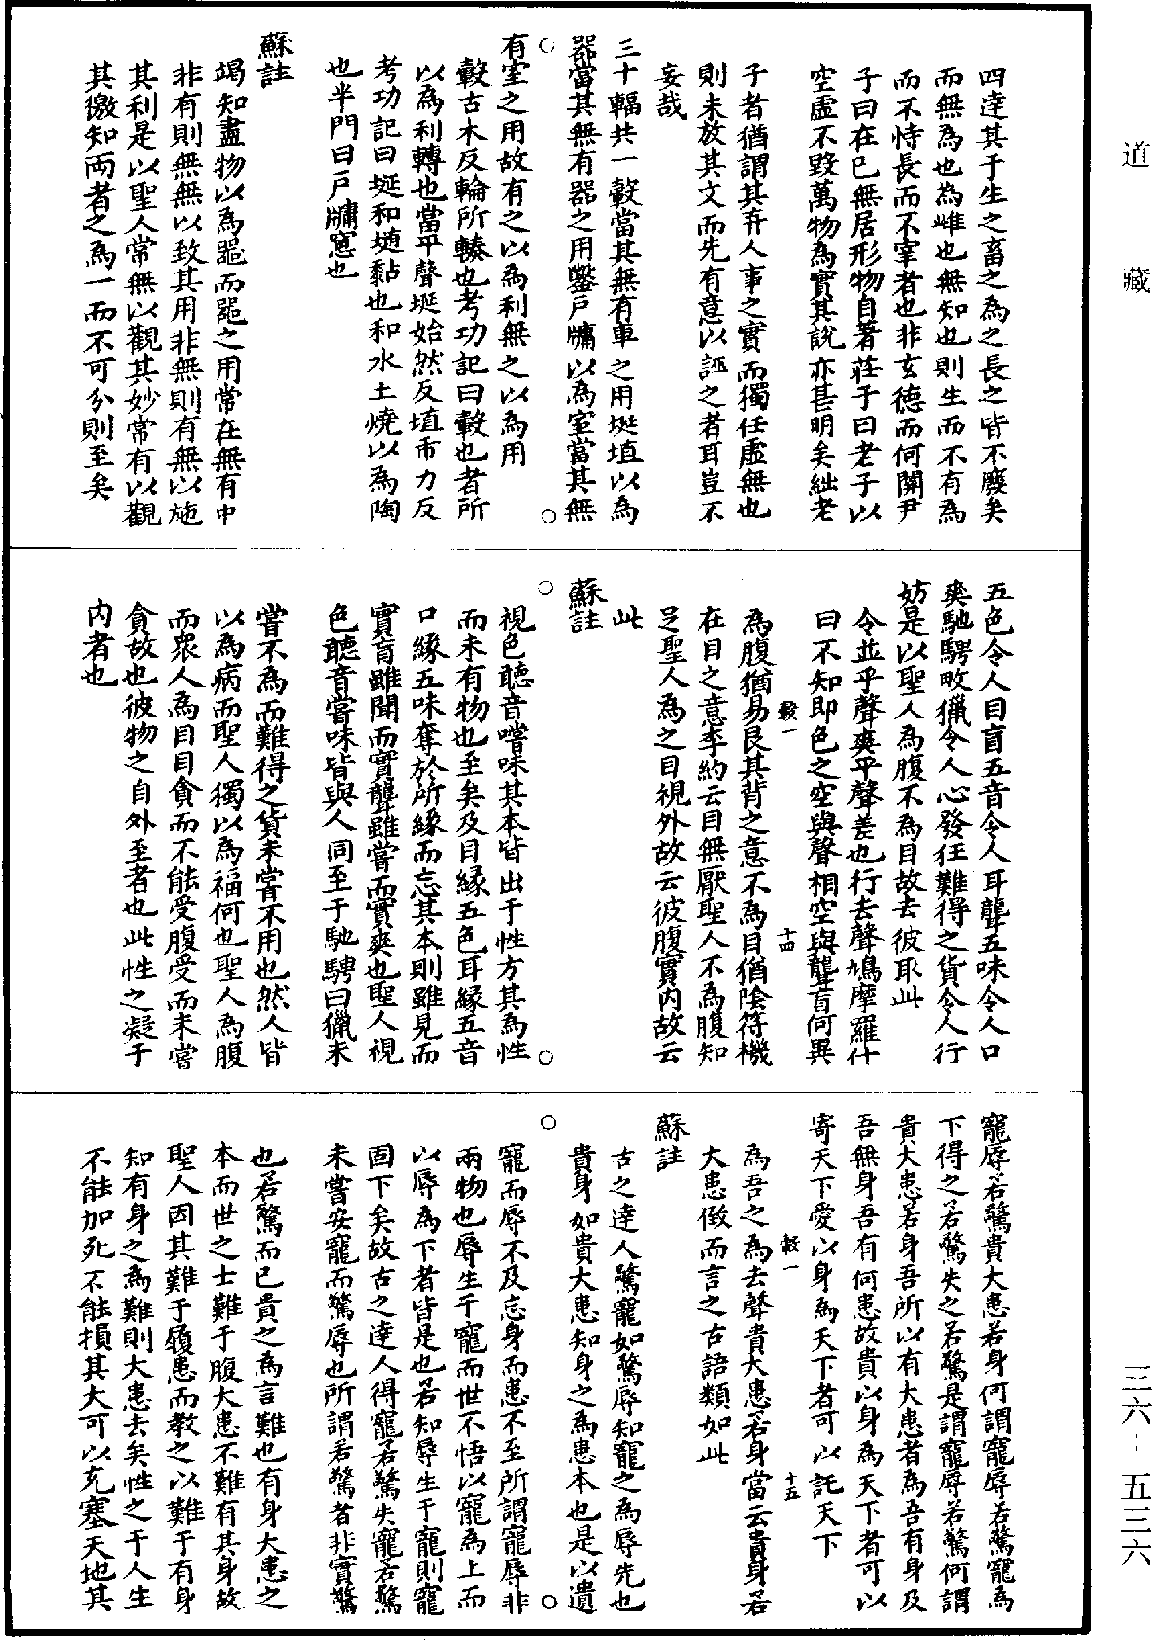 道藏
三六-五三六
四達其于生之畜之為之長之皆不廢矣
而無為也為雌也無知也則生而不有為
而不恃長而不宰者也非玄德而何關尹
子曰在已無居形物自著莊子曰老子以
空虛不毀萬物為實其說亦甚明矣絀老
子者猶謂其弃人事之實而獨任虛無也
則未放其文而先有意以誣之者耳豈不
妄哉
三十輻共一轂當其無有車之用埏埴以為
器當其無有器之用鑿戶牖以為室當其無
有室之用故有之以為利無之以為用
轂古木反輪所轃也考功記曰轂也者所
以為利轉也當平聲埏始然反埴市力反
考功記曰埏和埴黏也和水土燒以為陶
也半門曰戶牖窻也
蘇註
竭知盡物以為噐而噐之用常在無有中
非有則無無以致其用非無則有無以施
其利是以聖人常無以觀其妙常有以觀
其徼知兩者之為一而不可分則至矣
五色令人目盲五音令人耳聾五味令人口
爽馳騁畋獵令人心發狂難得之貨令人行
妨是以聖人為腹不為目故去彼取此
令並乎聲爽平聲差也行去聲鳩摩羅什
曰不知即色之空與聲相空與聾盲何異
轂一
十四
為腹猶易艮其背之意不為目猶陰符機
在目之意李約云目無厭聖人不為腹知
足聖人為之目視外故云彼腹實內故云
此
蘇註
視色聽音嚐味其本皆出于性方其為性
而未有物也至矣及目緣五色耳緣五音
口緣五味奪於所緣而忘其本則雖見而
實盲雖聞而實聾雖嘗而實爽也聖人視
色聽音嘗味皆與人同至于馳騁曰獵未
嘗不為而難得之貨未嘗不用也然人皆
以為病而聖人獨以為福何也聖人為腹
而衆人為目目貪而不能受腹受而未嘗
貪故也彼物之自外至者也此性之凝于
內者也
寵辱若驚貴大患若身何謂寵辱若驚寵為
下得之若驚失之若驚是謂寵辱若驚何謂
貴大患若身吾所以有大患者為吾有身及
吾無身吾有何患故貴以身為天下者可以
寄天下愛以身為天下者可以託天下
轂一
十五
為吾之為去聲貴大患若身當云貴身若
大患倒而言之古語類如此
蘇註
古之達人驚寵如驚辱知寵之為辱先也
貴身如貴大患知身之為患本也是以遺
寵而辱不及忘身而患不至所謂寵辱非
兩物也辱生于寵而世不悟以寵為上而
以辱為下者皆是也若知辱生于寵則寵
固下矣故古之達人得寵若驚失寵若驚
未嘗安寵而驚辱也所謂若驚者非實驚
也若驚而已貴之為言難也有身大患之
本而世之士難于腹大患不難有其身故
聖人因其難于履患而教之以難于有身
知有身之為難則大患去矣性之于人生
不能加死不能損其大可以充塞天地其